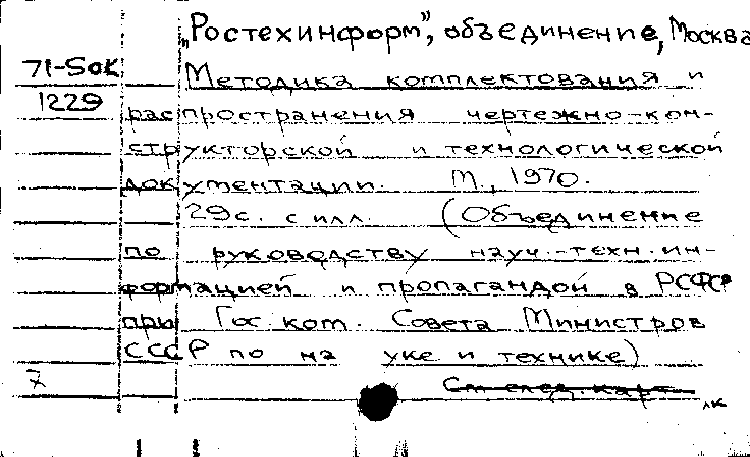 „Ростехинформ”, объединение, Москва
71-5ок
Методика комплектования и
1229
распространения чертежно-кон-
структорской и технологической
документации. М., 1970.
29с. с илл. (Объединение
по руководству науч.-техн. ин-
формацией и пропагандой в РСФСР
при Гос. ком. Совета Министров
СССР по науке и технике)
7
См. след. карт.
лк